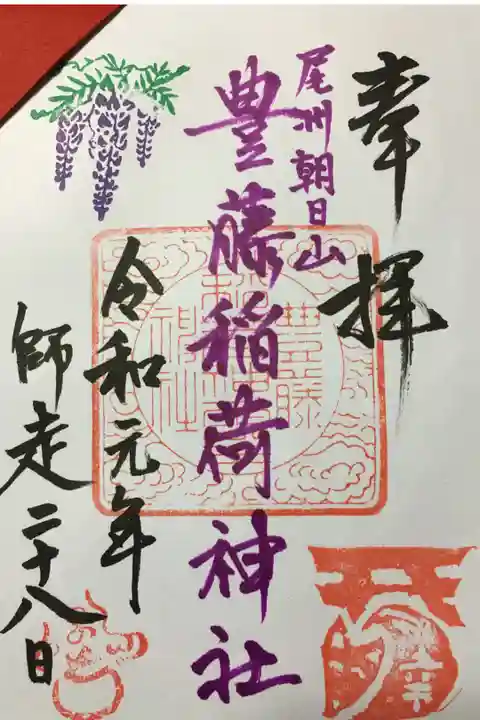 奉拝
尾州朝日山
豊藤稲荷神社
令和元年
師走二十八日
豊藤
稲荷
神社